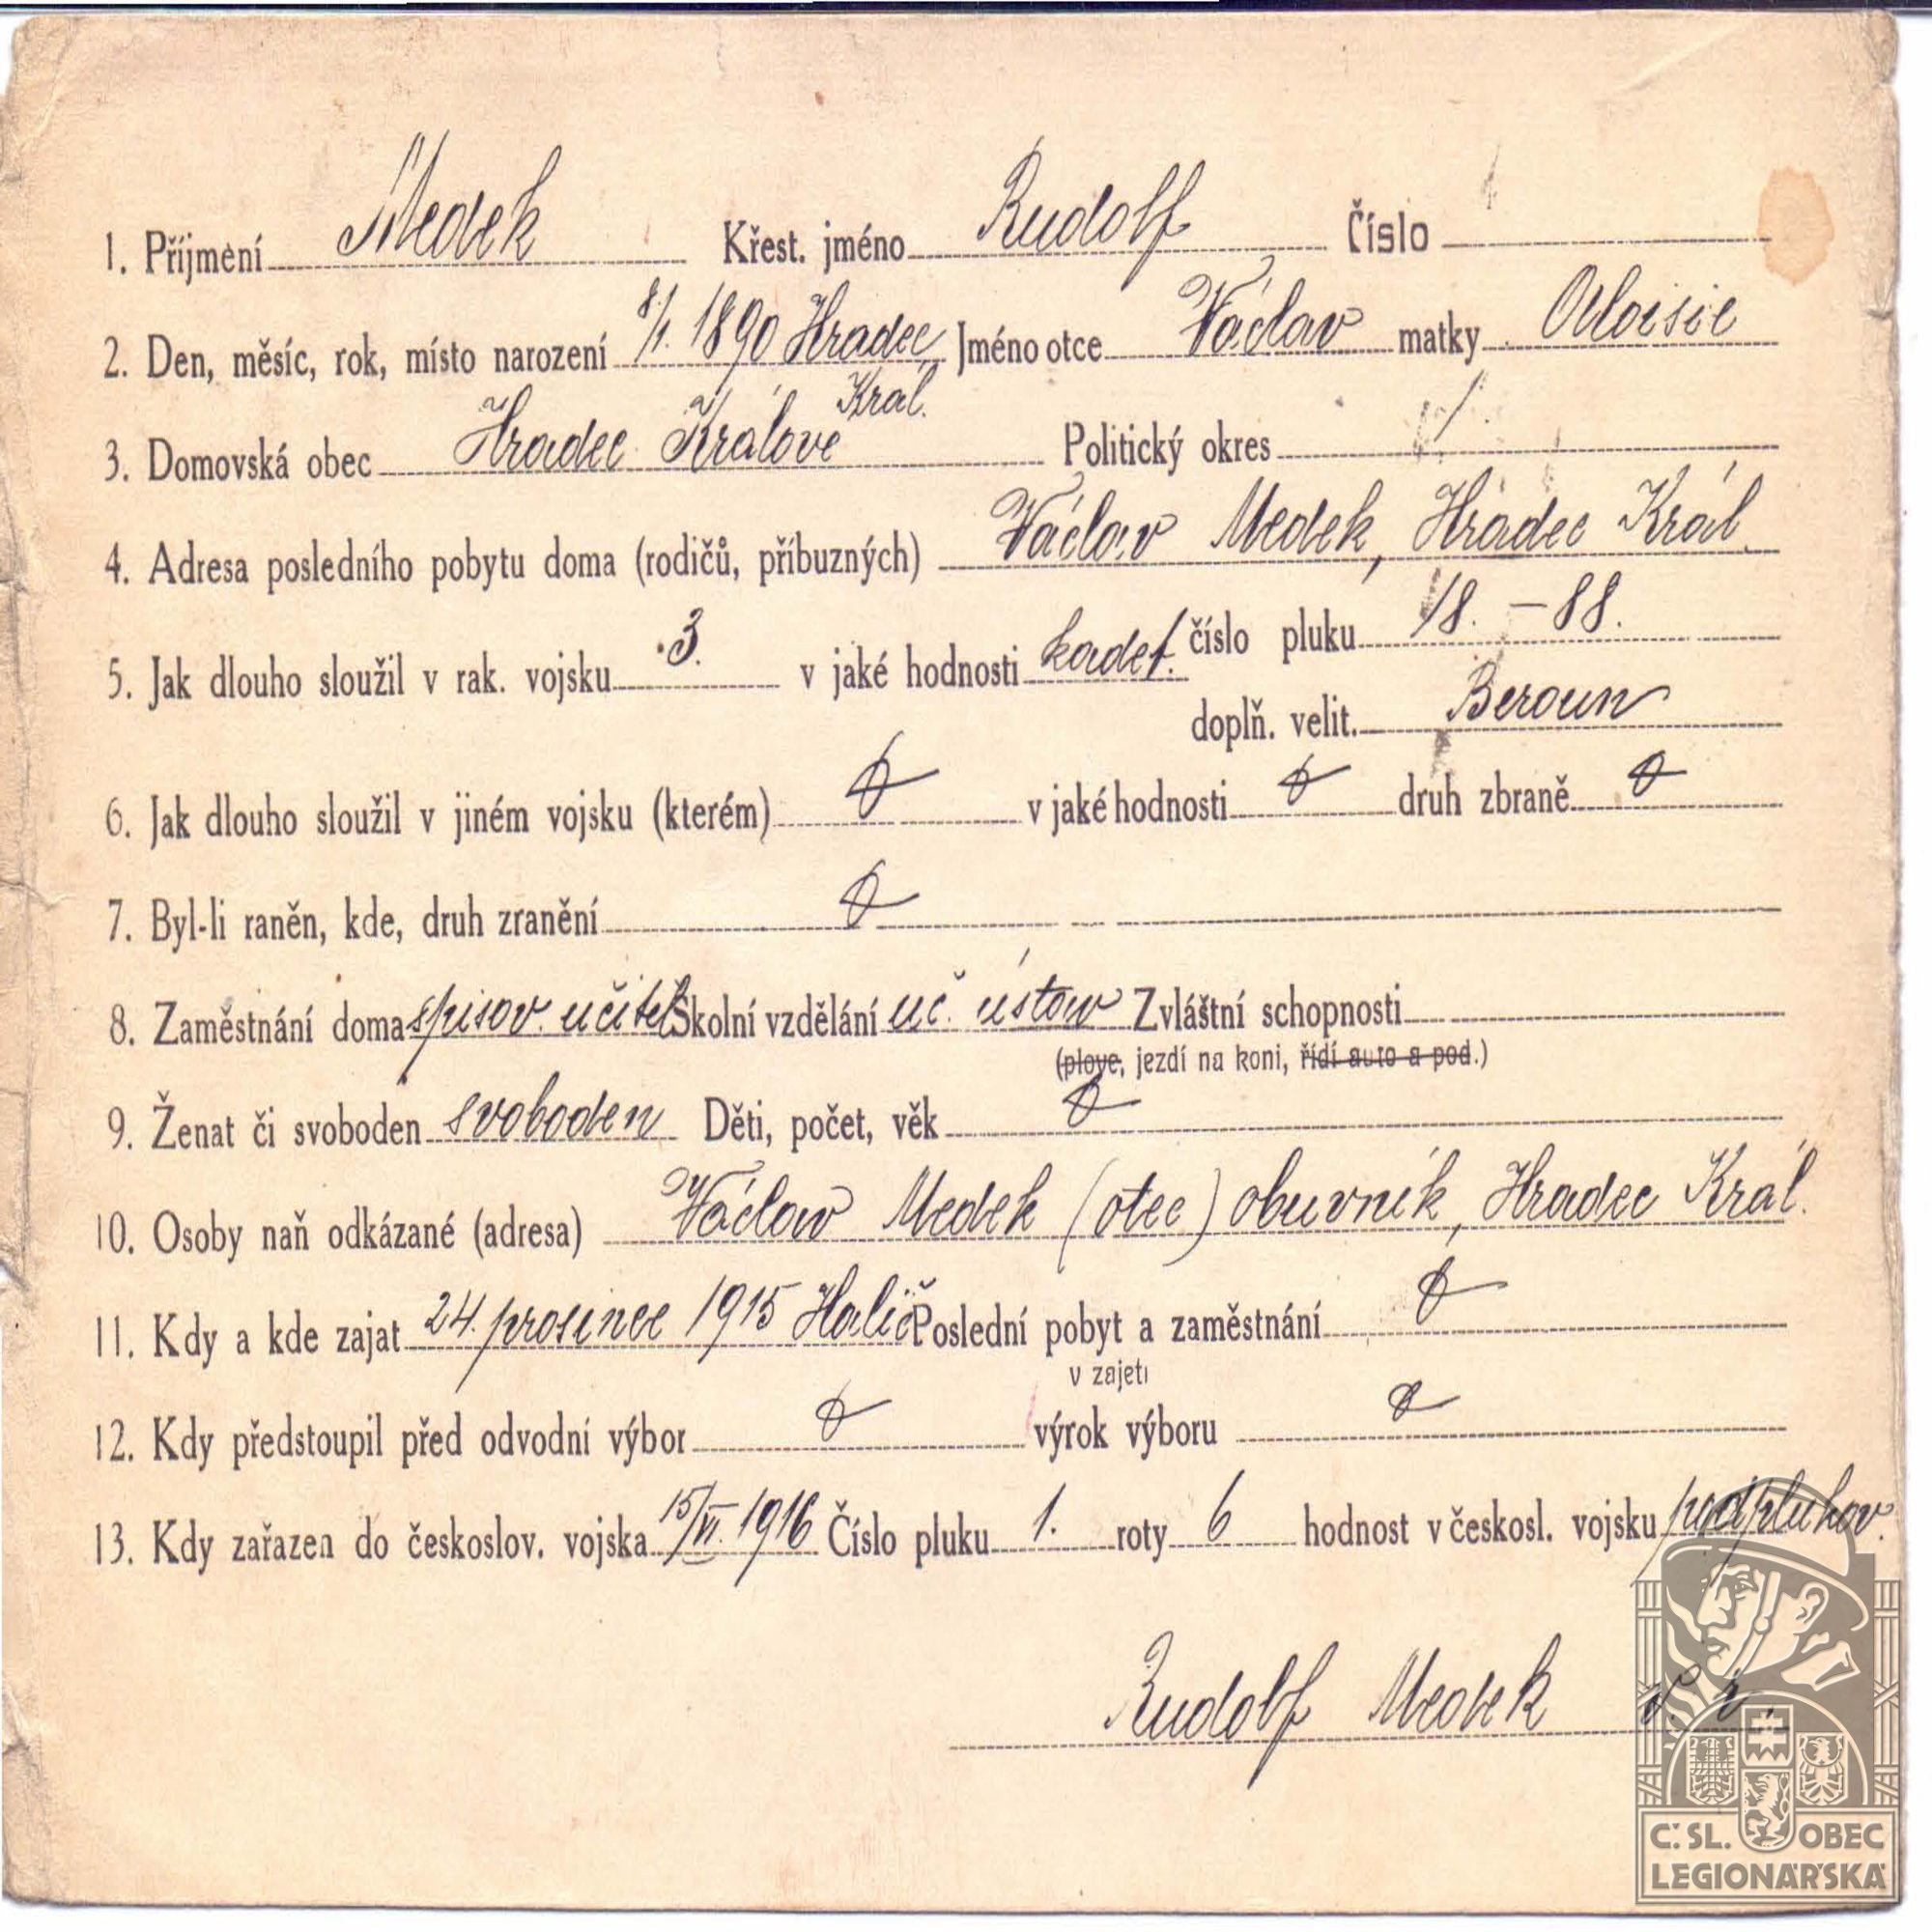 1. Příjmení Medek Křest. jméno Rudolf Číslo
2. Den, měsíc, rok, místo narození 8/1. 1890 Hradec Jméno otce Václav matky Aloisie
Král.
3. Domovská obec Hradec Králové Politický okres
4. Adresa posledního pobytu doma (rodičů, příbuzných) Václav Medek, Hradec Král.
5. Jak dlouho sloužil v rak. vojsku 3. v jaké hodnosti kadet. číslo pluku 18. – 88.
doplň. velit. Beroun
6. Jak dlouho sloužil v jiném vojsku (kterém) v jaké hodnosti druh zbraně
7. Byl-li raněn, kde, druh zranění
8. Zaměstnání doma spisov. učitel Školní vzdělání uč. ústav Zvláštní schopnosti
(plove, jezdí na koni, řídí auto a pod.)
9. Ženat či svoboden svoboden Děti, počet, věk
10. Osoby naň odkázané (adresa) Václav Medek (otec) obuvník, Hradec Král.
11. Kdy a kde zajat 24. prosince 1915 Halič Poslední pobyt a zaměstnání
v zajetí
12. Kdy předstoupil před odvodní výbor výrok výboru
13. Kdy zařazen do českoslov. vojska 15/VI. 1916 Číslo pluku 1. roty 6 hodnost v českosl. vojsku podplukov.
Rudolf Medek v. r.
Č. SL. OBEC
LEGIONÁŘSKÁ